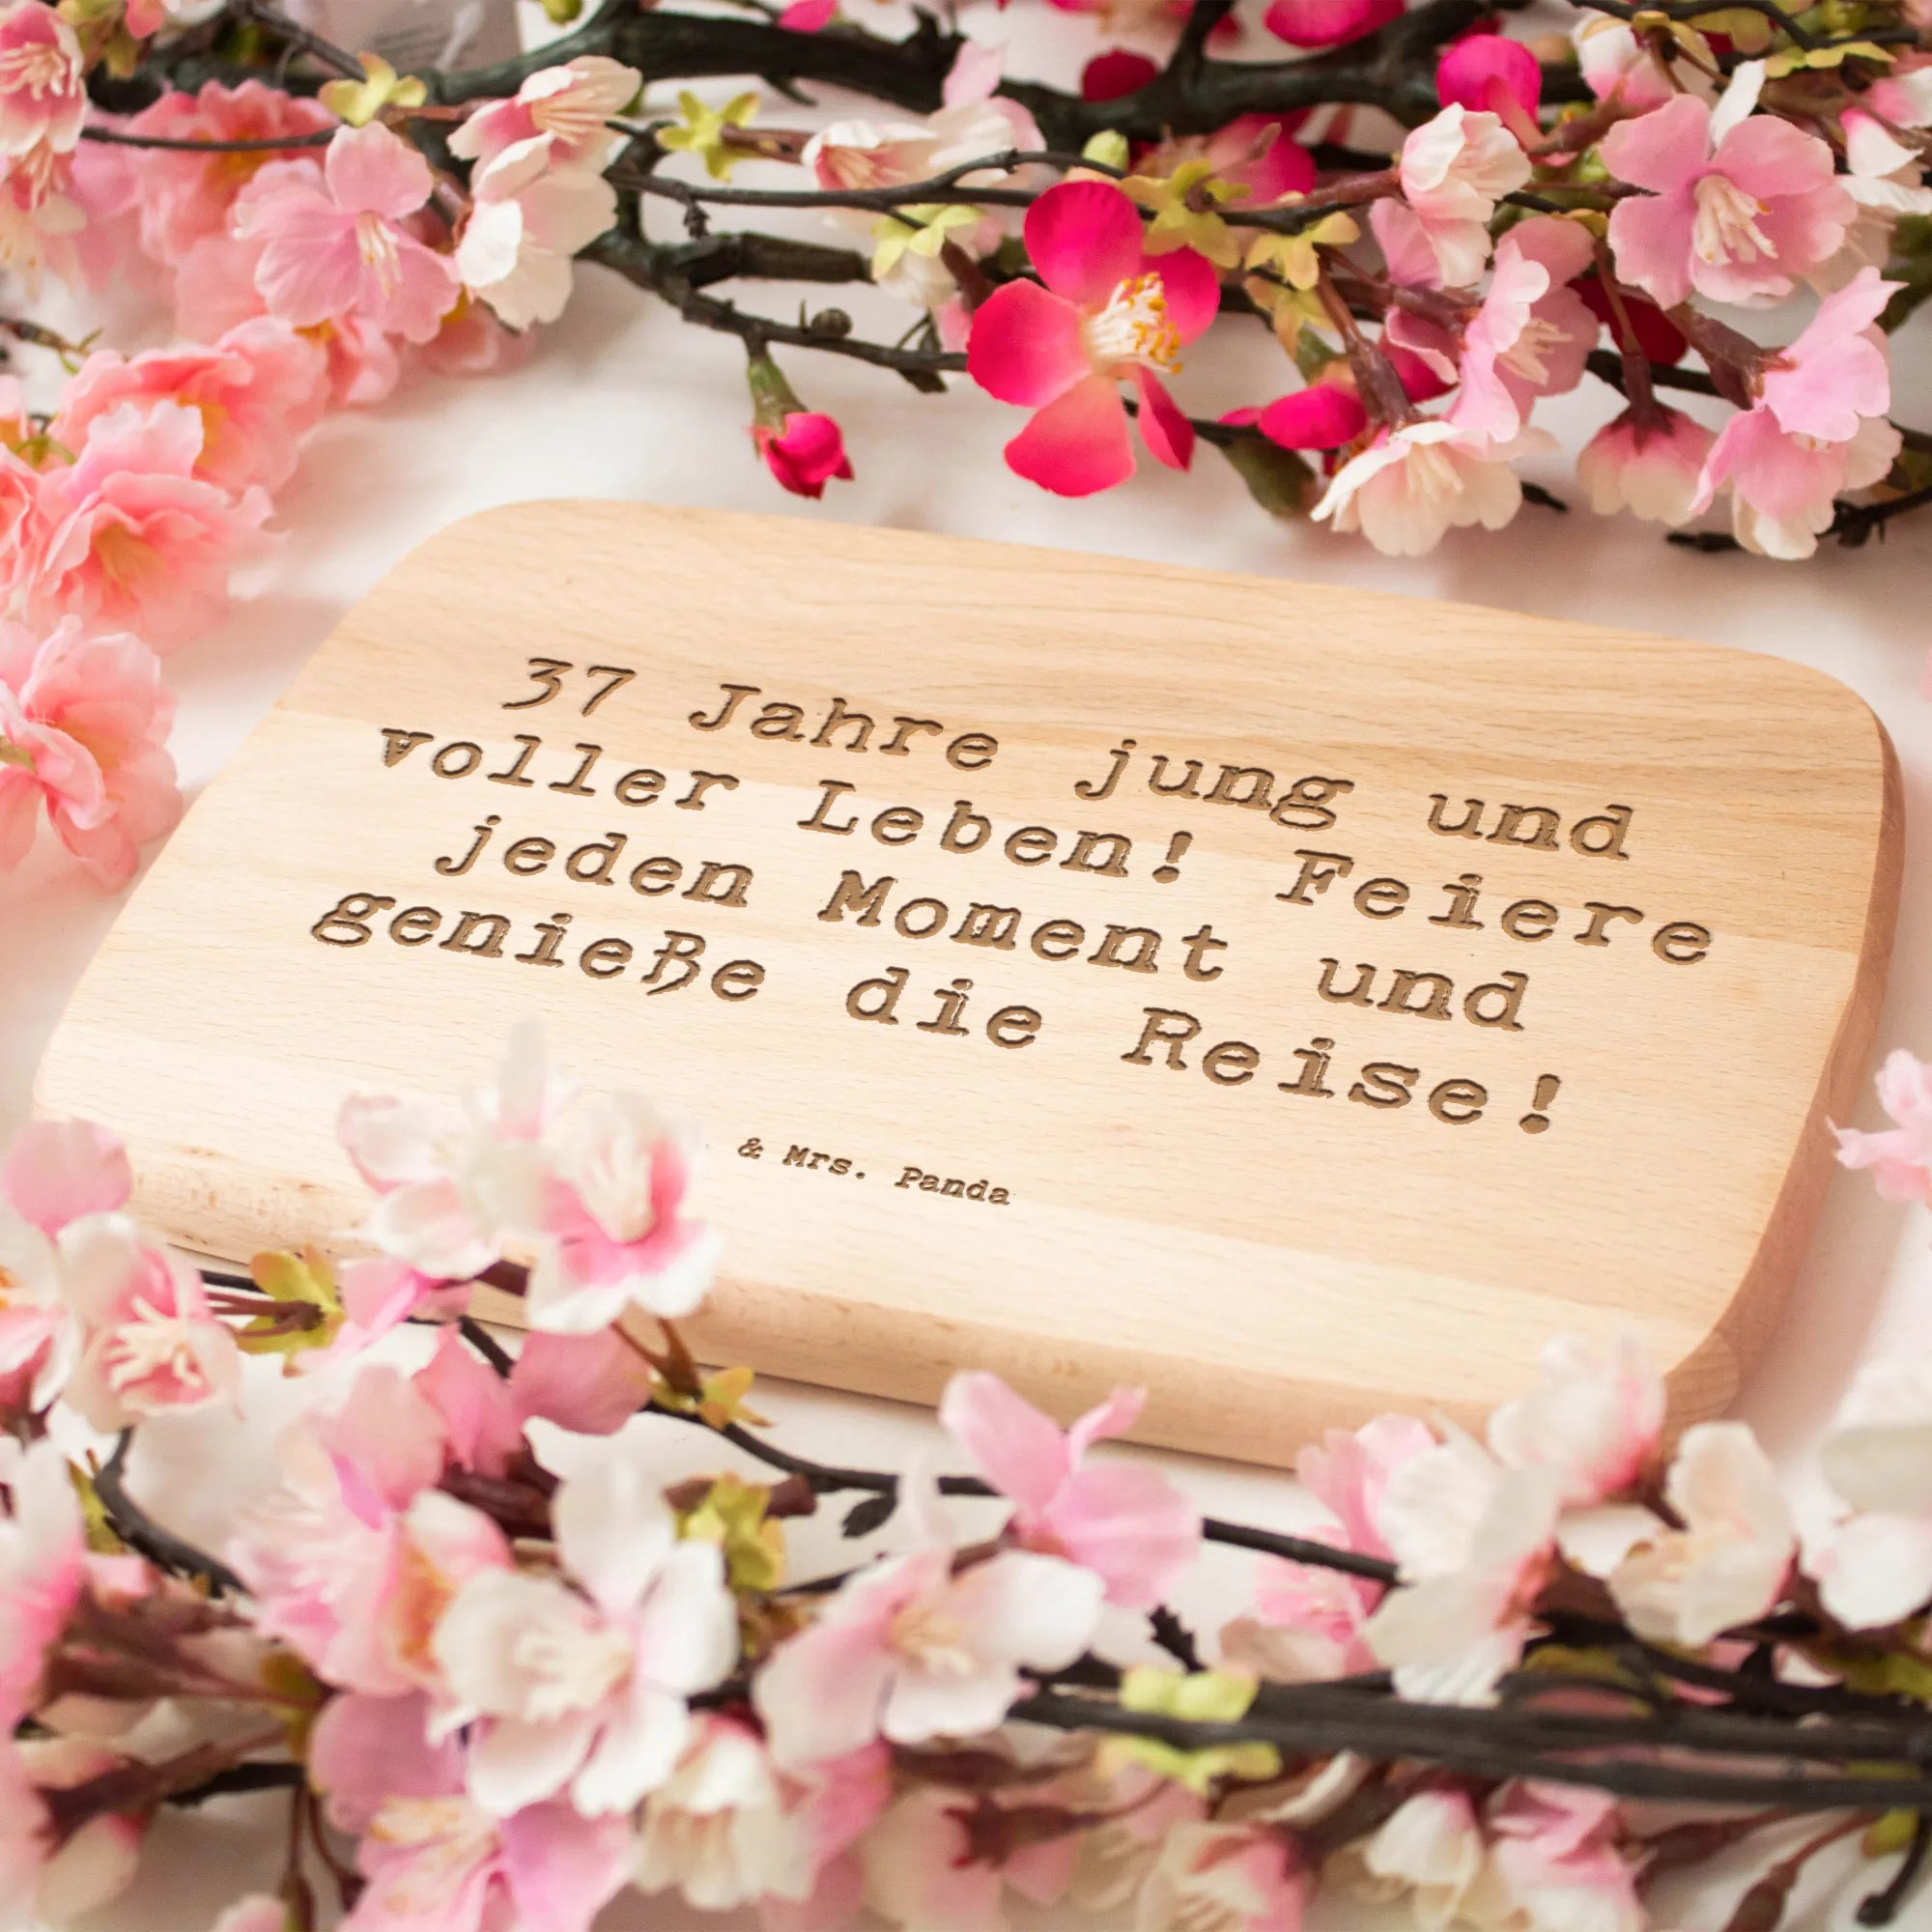 37 Jahre jung und
voller Leben! Feiere
jeden Moment und
genieße die Reise!
& Mrs. Panda